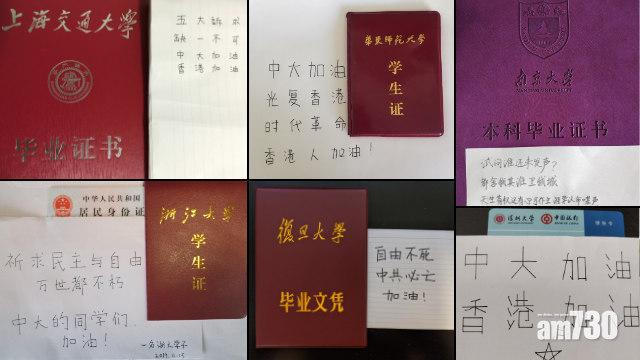 上海交通大学
毕业证书
五大訴求
缺一不可
中大加油
香港加油
華東师范大学
学生证
中大加油
光复香港
时代革命
香港人加油！
南京大学
本科毕业证书
试问谁还未发声？
都舍我其谁卫我城
天生有权还有心可作主 谁要认命噤声
中华人民共和国
居民身份证
浙江大学
学生证
祈求民主与自由
万世都不朽
中大的同学们，
加油！
一名浙大学子
2019.11.15
復旦大学
毕业文凭
自由不死
中共必亡
加油！
深圳大学 中国银行
中大加油
香港加油
am730